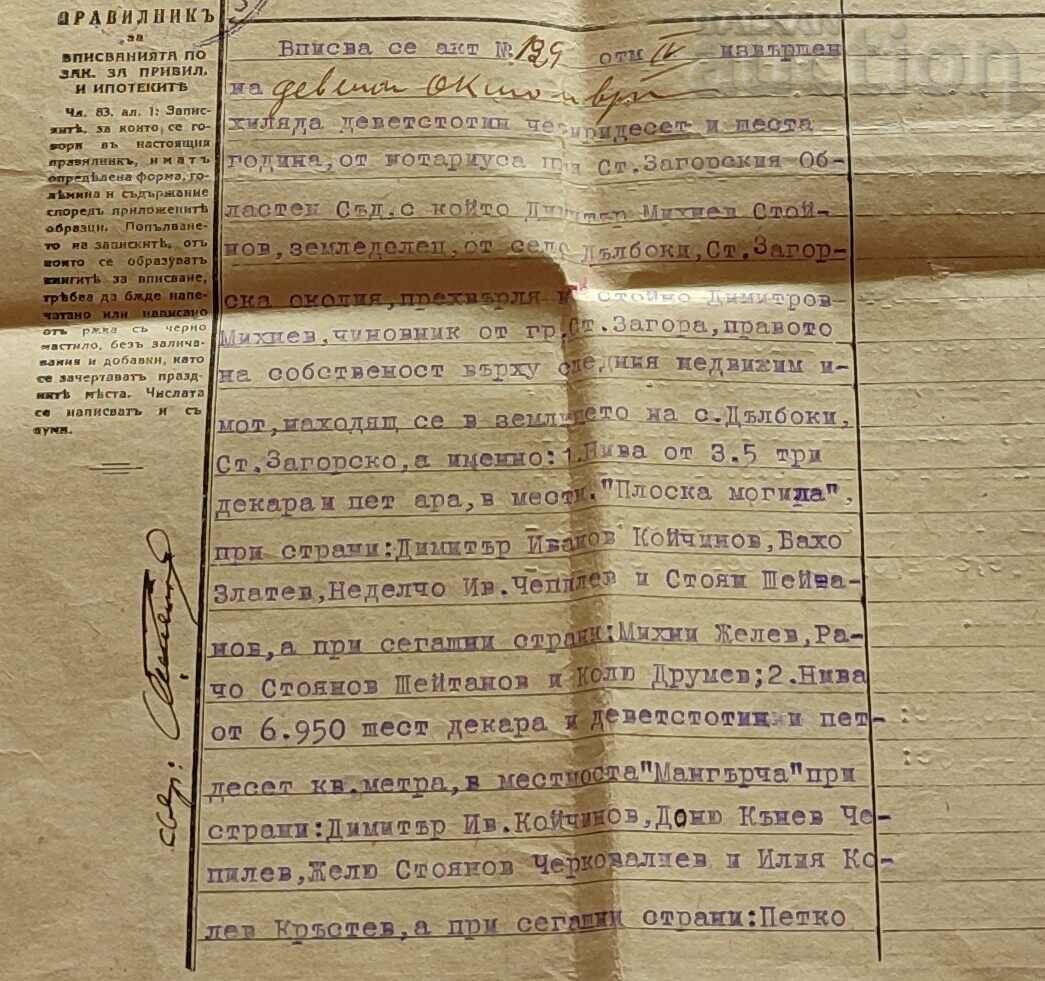 ПРАВИЛНИКЪ
за
ВПИСВАНИЯТА ПО
ЗАК. ЗА ПРИВИЛ.
И ИПОТЕКИТѢ
Чл. 83. ал. 1: Запис-
китѣ, за които се го-
вори въ настоящия
правилникъ, иматъ
опредѣлена форма, го-
лѣмина и съдържание
споредъ приложенитѣ
образци. Попълване-
то на записките, отъ
които се образуватъ
книгитѣ за вписване,
трѣбва да бѫде напе-
чатано или написано
отъ рѫка съ черно
мастило, безъ залича-
вания и добавки, като
се зачертаватъ празд-
нитѣ мѣста. Числата
се написватъ и съ
думи.
свер:
Вписва се акт № 129 отм IV извършен
на девети октомври
хиляда деветстотин четиридесет и шеста
година, от нотариуса при Ст.Загорския Об-
ластен Съд, с който Димитър Михнев Стой-
нов, земледелец, от село Дълбоки, Ст.Загор-
ска околия, прехвърля на Стойно Димитров
Михнев, чиновник от гр.Ст.Загора, правото
на собственост върху следния недвижим и-
мот, находящ се в землището на с.Дълбоки,
Ст.Загорско, а именно: 1.Нива от 3.5 три
декара и пет ара, в местн. "Плоска могила",
при страни: Димитър Иванов Койчинов, Бахо
Златев, Неделчо Ив.Чепилев и Стоян Шейва-
нов, а при сегашни страни: Михни Желев, Ра-
чо Стоянов Шейтанов и Колю Друмев; 2.Нива
от 6.950 шест декара и деветстотин и пет-
десет кв.метра, в местноста "Мангърча" при
страни: Димитър Ив.Койчинов, Доню Кънев Че-
пилев, Желю Стоянов Черковалиев и Илия Ко-
лев Кръстев, а при сегашни страни: Петко
BALKAN
auction